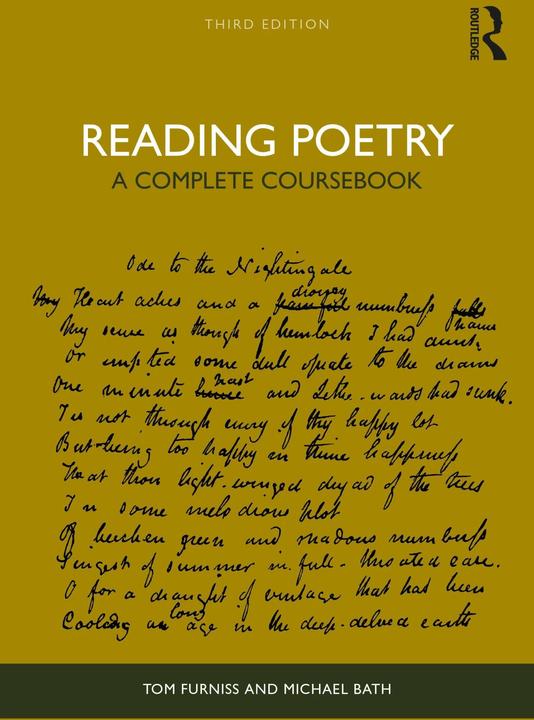 THIRD EDITION
ROUTLEDGE
READING POETRY
A COMPLETE COURSEBOOK
Ode to the Nightingale
drowsy
My Heart aches and a painful numbness falls
pains
My sense as though of hemlock I had drunk,
Or emptied some dull opiate to the drains
past
One minute hence and Lethe-wards had sunk.
Tis not through envy of thy happy lot
But being too happy in thine happiness
That thou light-winged dryad of the trees
In some melodious plot
Of beechen green and shadows numberless
Singest of summer in full-throated ease.
O for a draught of vintage that has been
long
Cooling an age in the deep-delved earth
TOM FURNISS AND MICHAEL BATH